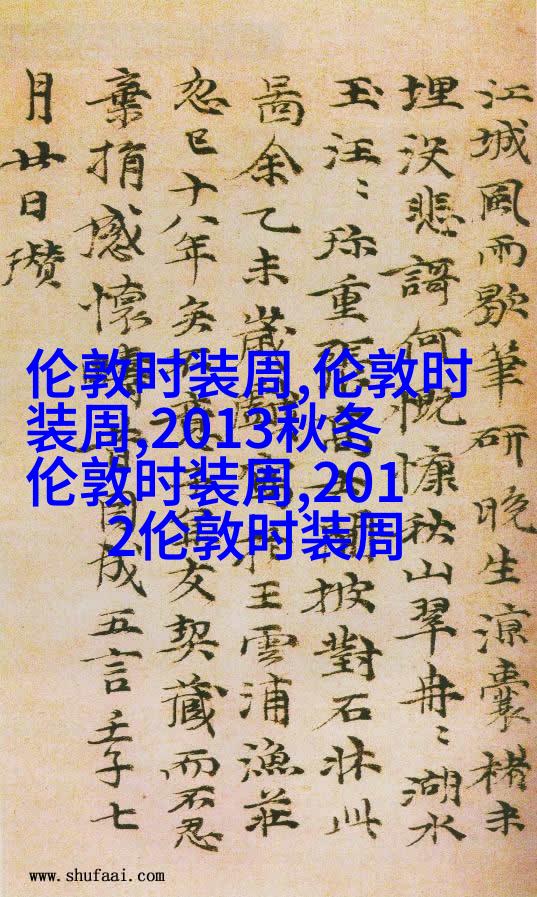 江城風雨歇筆研晚生涼囊楮未
埋沒悲謌何慨慷秋山翠冉〻湖水
玉汪〻珎重披對石牀此
啚余乙未歲戲寫於王雲浦漁莊
忽已十八年矣友契藏而不忍
棄捐感懷因成五言壬子七
月廿日瓚
伦敦时装周,伦敦时
装周,2013秋冬
伦敦时装周,201
2伦敦时装周
www.shufaai.com